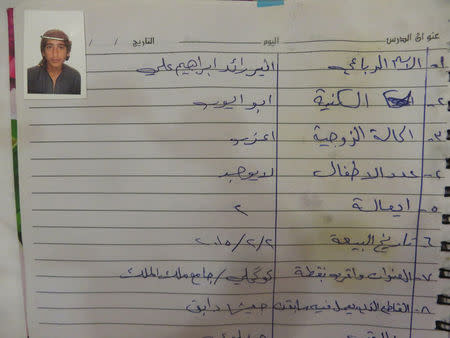 عنوان الدرس اليوم التاريخ / /
١- الاسم الرباعي رائد ابراهيم علي
٢- الكنية ابو ايوب
٣- الحالة الزوجية اعزب
٤- عدد الاطفال لا يوجد
٥- اعالة ٢
٦- تاريخ البيعة ٢/٢/٢٠١٥
٧- العنوان واقرب نقطة كوكجلي / جامع ملك الملك
٨- القاطع الذي يعمل فيه سابقا دابق